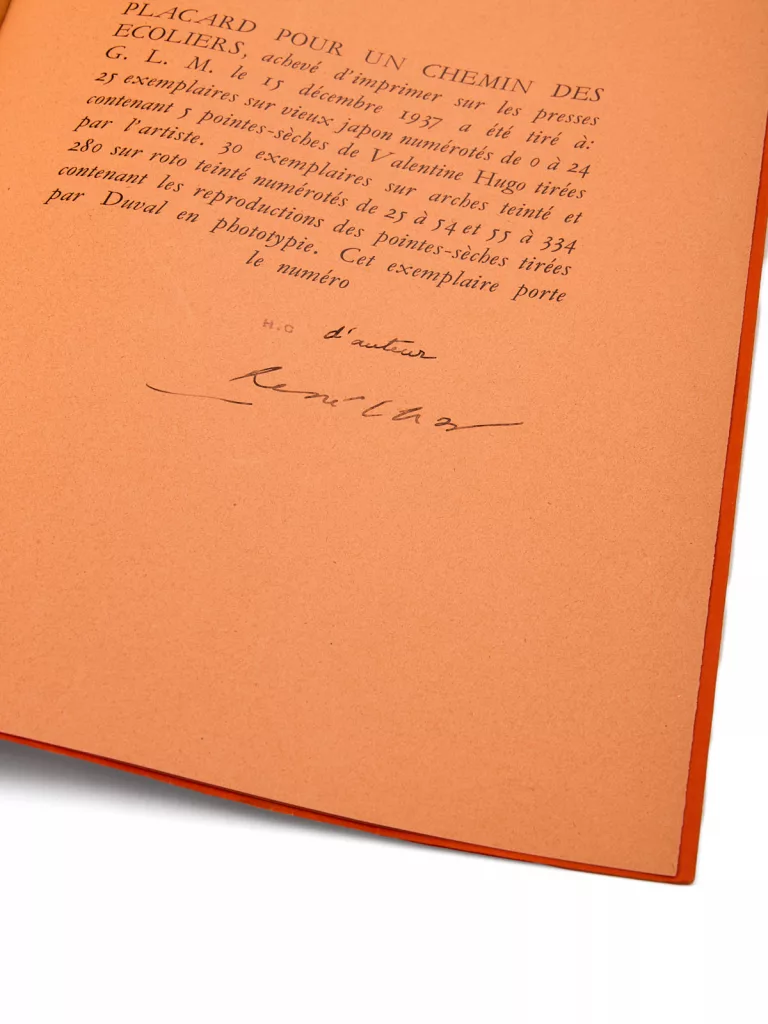 PLACARD POUR UN CHEMIN DES
ECOLIERS, achevé d'imprimer sur les presses
G. L. M. le 15 décembre 1937 a été tiré à:
25 exemplaires sur vieux japon numérotés de 0 à 24
contenant 5 pointes-sèches de Valentine Hugo tirées
par l'artiste. 30 exemplaires sur arches teinté et
280 sur roto teinté numérotés de 25 à 54 et 55 à 334
contenant les reproductions des pointes-sèches tirées
par Duval en phototypie. Cet exemplaire porte
le numéro
H.C d'auteur
René Char